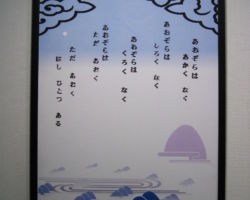 あおぞらは
あかく なく
あおぞらは
しろく なく
あおぞらは
くろく なく
あおぞらは
ただ あおく
ただ あおく
ほし ひとつ ある